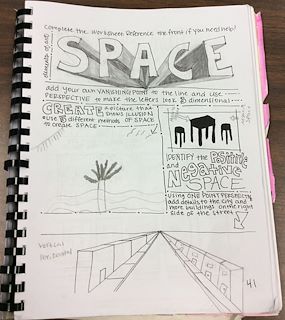 Complete the Worksheet. Reference the front if you need help!
elements of art
SPACE
add your own VANISHING POINT to the line and use
PERSPECTIVE to make the letters look 3 dimensional
CREATE a picture that
shows ILLUSION
use 3 different methods OF SPACE
to create SPACE
IDENTIFY the Positive
and Negative
SPACE
Using ONE POINT PERSPECTIVE
add details to the city and
more buildings on the right
side of the street
Vertical
Horizontal
41